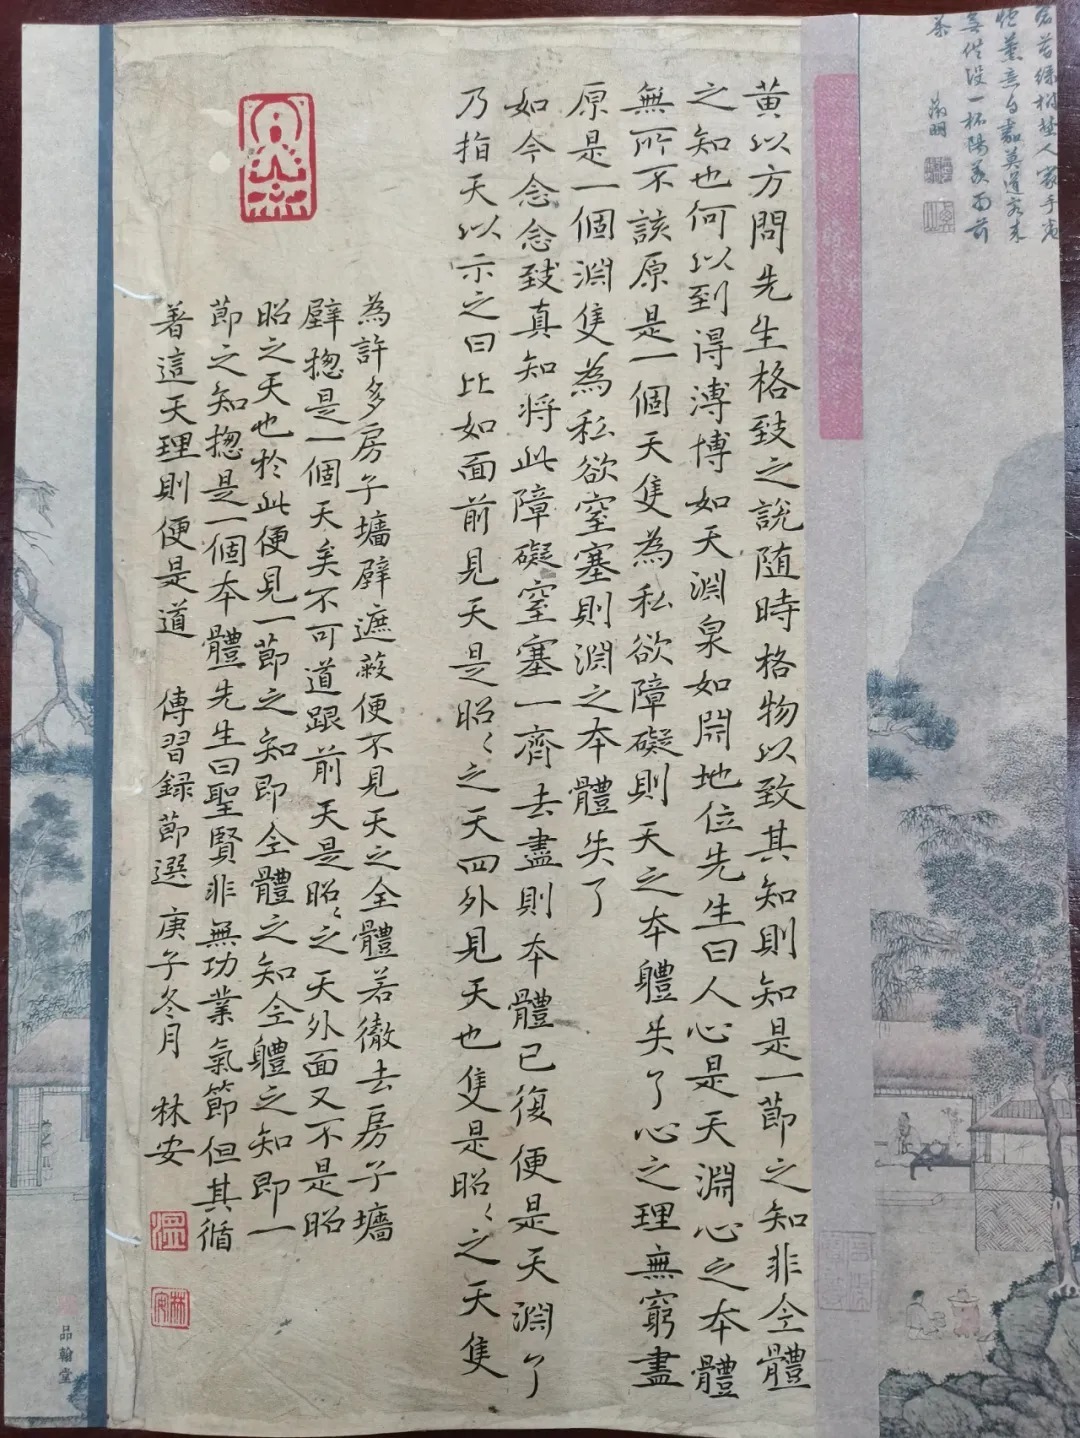 黄以方問先生格致之説随時格物以致其知則知是一節之知非全體
之知也何以到得溥博如天淵泉如淵地位先生曰人心是天淵心之本體
無所不該原是一個天隻為私欲障礙則天之本體失了心之理無窮盡
原是一個淵隻為私欲窒塞則淵之本體失了
如今念念致真知将此障礙窒塞一齊去盡則本體已復便是天淵了
乃指天以示之曰比如面前見天是昭〻之天四外見天也隻是昭〻之天隻
為許多房子墻壁遮蔽便不見天之全體若徹去房子墻
壁揔是一個天矣不可道跟前天是昭〻之天外面又不是昭
昭之天也於此便見一節之知即全體之知全體之知即一
節之知揔是一個本體先生曰聖賢非無功業氣節但其循
著這天理則便是道 傳習録節選 庚子冬月 林安
品翰堂